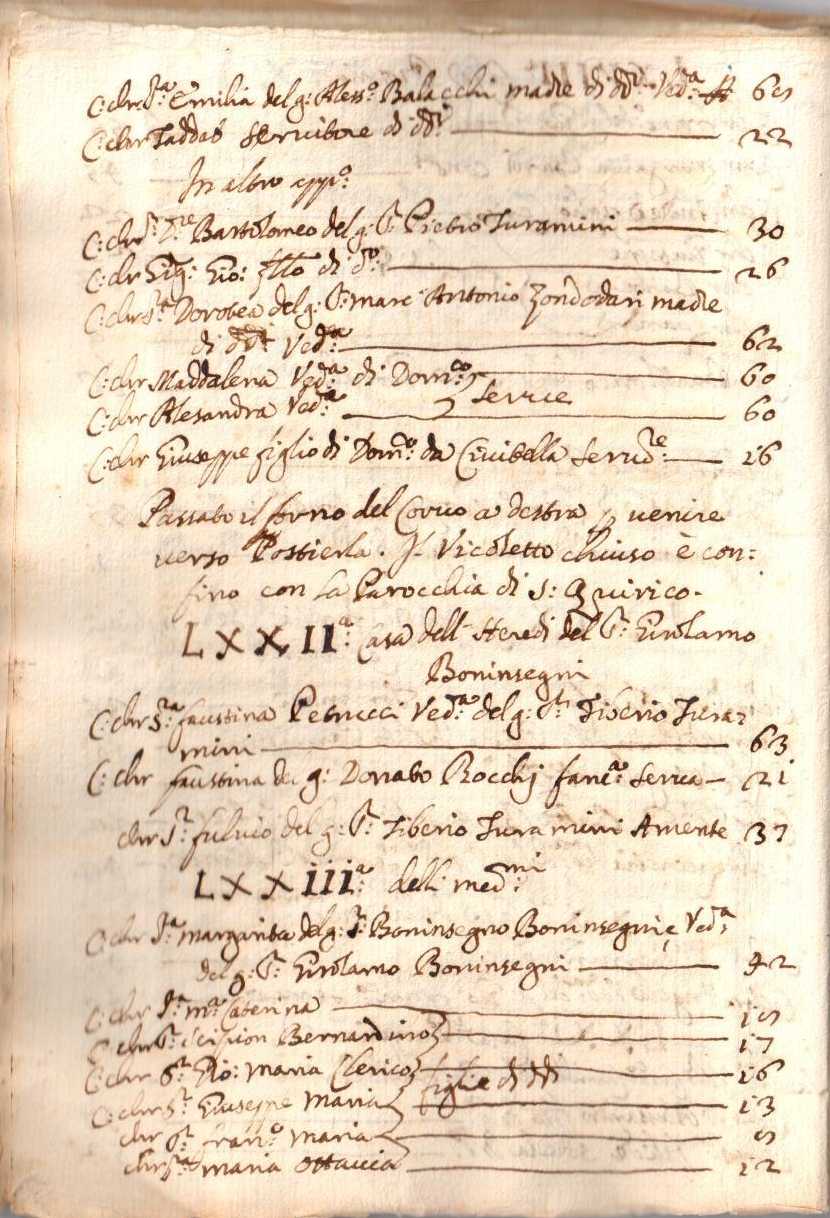 C: chr S.ª Emilia del g: Aless.º Balacchi madre di dd.i Ved.ª 60
C: chr Taddeo Servitore di dd.i 22
In altro app.º
C: chr S.r D.re Bartolomeo del g: S.r Pietro Turamini 30
C: chr Sig: Gio: fllo di d.º 26
C: chr S.ª Dorotea del g: S.r Marc Antonio Zondodari madre
di dd.i Ved.ª 62
C: chr Maddalena Ved.ª di Dom.co 60
Serve
C: chr Alesandra Ved.ª 60
C: chr Giuseppe figlio di Dom.º da Civitella Servid.re 16
Passato il forno del Corvo a destra p venire
verso Postierla. Il Vicoletto chiuso è con:
fino con la Parocchia di S: Quirico.
LXXII.ª Casa dell Heredi del S.r Girolamo
Boninsegni
C: chr S.ra faustina Petrucci Ved.ª del g: S.r Tiberio Tura:
mini 63
C: chr faustina del g: Donato Rocchj fanc.ª Serva 21
chr S.r fulvio del g: S.r Tiberio Turamini Amente 37
LXXiii.ª delli med.mi
C: chr S.ª Margarita del g: S.r Boninsegno Boninsegni e Ved.ª
del g: S.r Girolamo Boninsegni 42
C: chr S.ª M.ª Caterina 19
C: chr S.r Scipion Bernardino 17
C: chr S.r Gio: Maria Clerico 16
figlie di dd.i
C: chr S.r Giuseppe Maria 13
chr S.r fran.º Maria 9
chr S.ra Maria Ottavia 12